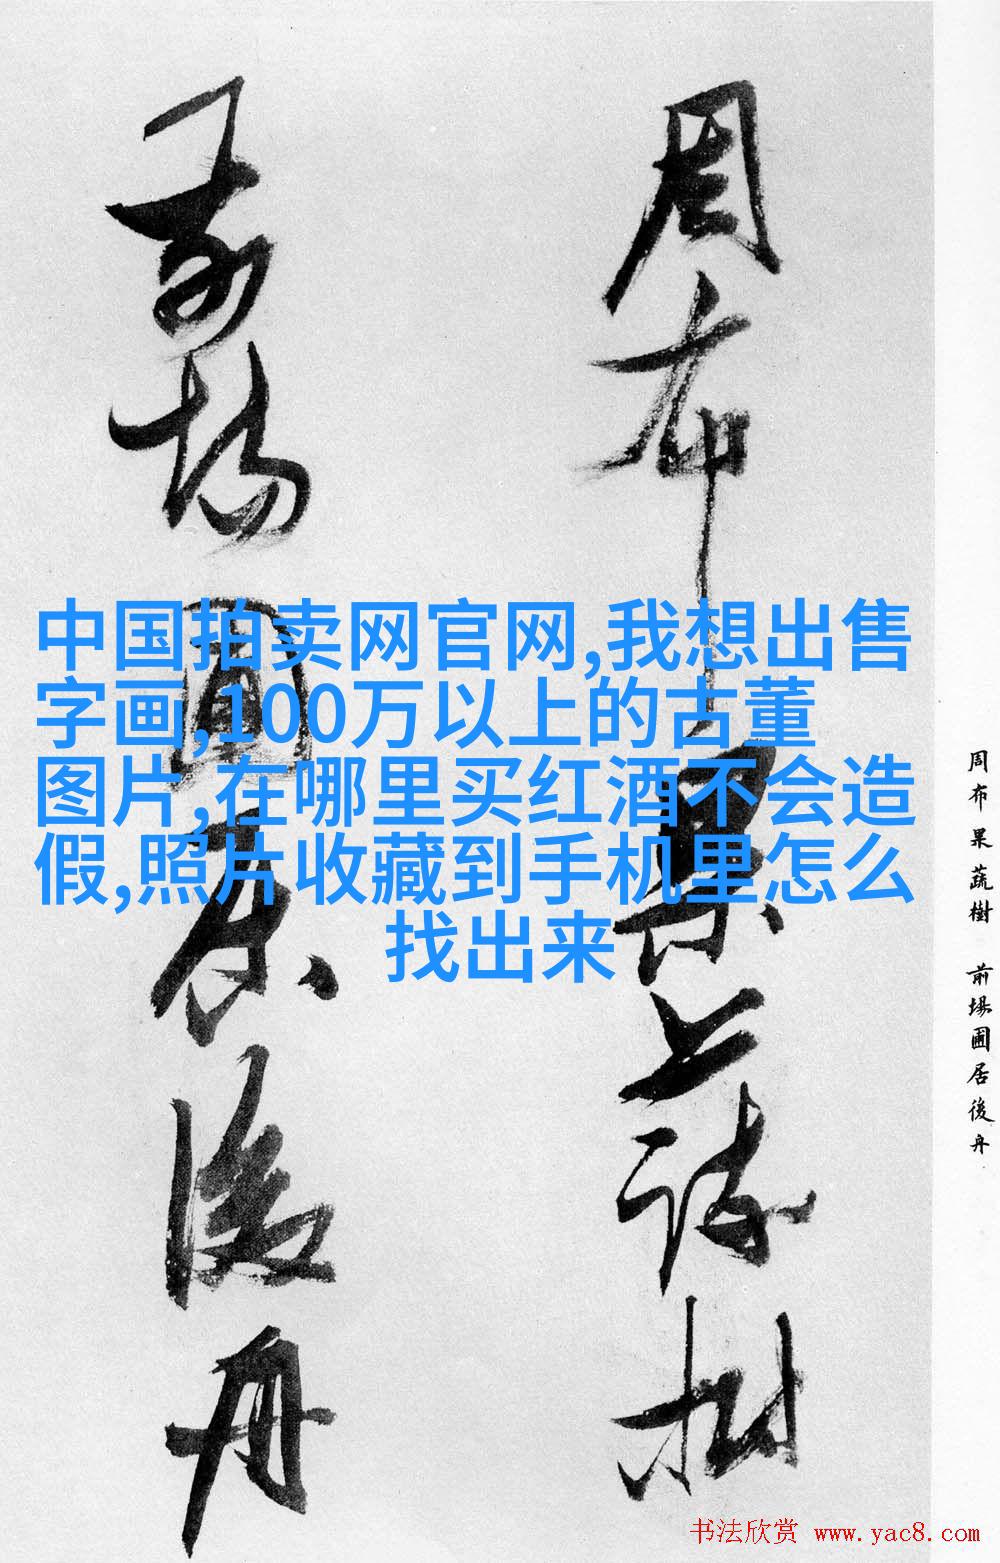 周布果蔬樹
前場圃居後舟
中国拍卖网官网,我想出售
字画,100万以上的古董
图片,在哪里买红酒不会造
假,照片收藏到手机里怎么
找出来
周布果蔬樹 前場圃居後舟
书法欣赏 www.yac8.com